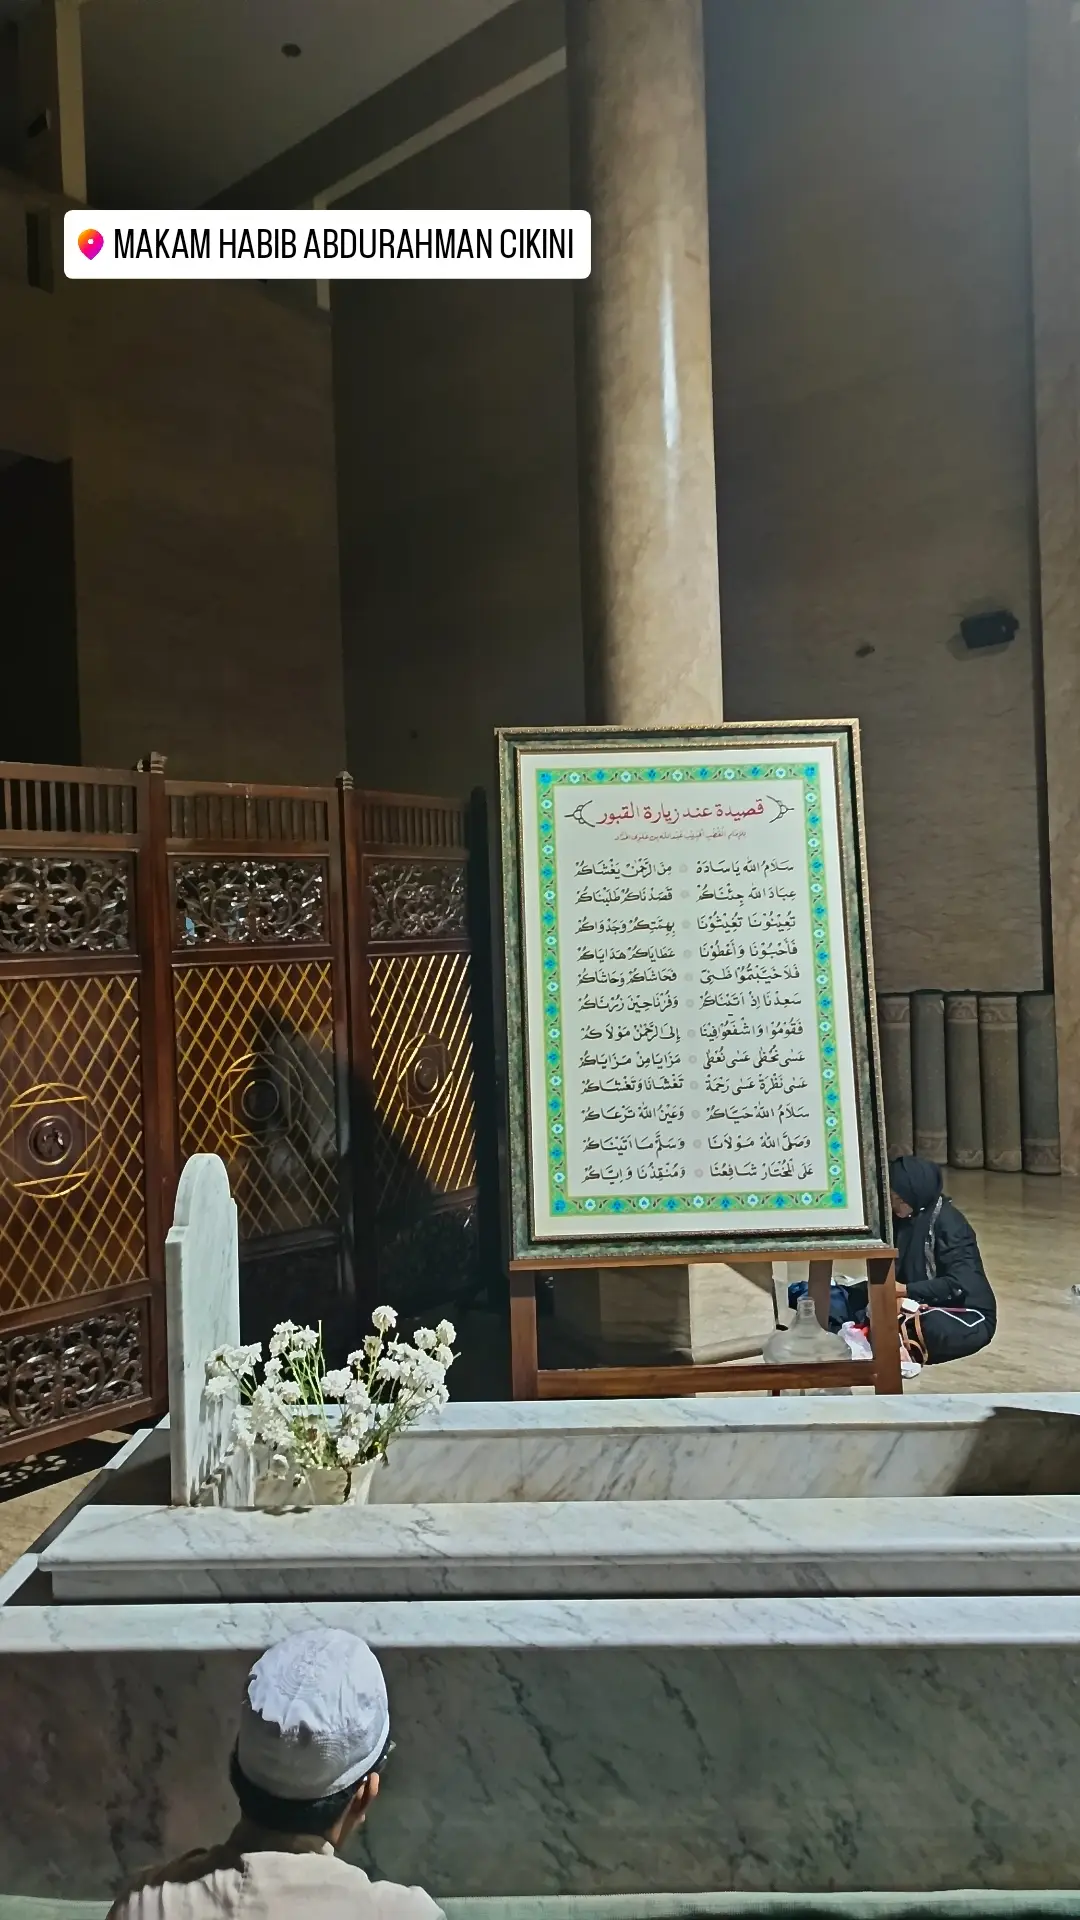 MAKAM HABIB ABDURAHMAN CIKINI
قصيدة عند زيارة القبور
سَلَامُ اللهِ يَا سَادَةْ مِنَ الرَّحْمٰنِ يَغْشَاكُمْ
عِبَادَ اللهِ جِئْنَاكُمْ قَصَدْنَاكُمْ طَلَبْنَاكُمْ
تُعِيْنُوْنَا تُغِيْثُوْنَا بِهِمَّتِكُمْ وَجَدْوَاكُمْ
فَأَحْبُوْنَا وَأَعْطُوْنَا عَطَايَاكُمْ هَدَايَاكُمْ
فَلَا خَيَّبْتُمُوْا ظَنِّيْ فَحَاشَاكُمْ وَحَاشَاكُمْ
سَعِدْنَا إِذْ أَتَيْنَاكُمْ وَفُزْنَا حِيْنَ زُرْنَاكُمْ
فَقُوْمُوْا وَاشْفَعُوْا فِيْنَا إِلَى الرَّحْمٰنِ مَوْلَاكُمْ
عَسَى نُحْظَى عَسَى نُعْطَى مَزَايَا مِنْ مَزَايَاكُمْ
عَسَى نَظْرَةْ عَسَى رَحْمَةْ تَغْشَانَا وَتَغْشَاكُمْ
سَلَامُ اللهِ حَيَّاكُمْ وَعَيْنُ اللهِ تَرْعَاكُمْ
وَصَلَّى اللهُ مَوْلَانَا وَسَلَّمَ مَا أَتَيْنَاكُمْ
عَلَى الْمُخْتَارِ شَافِعُنَا وَمُنْقِذُنَا وَإِيَّاكُمْ